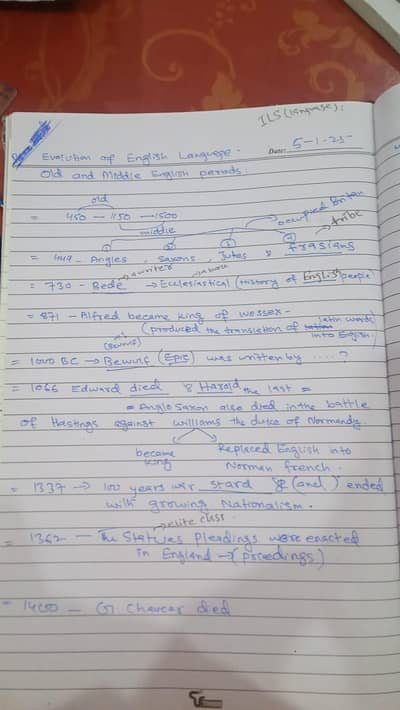 ILS (language):
Date: 5-1-25
Evolution of English Language.
Old and Middle English periods.
old
= 450 — 1150 — 1500
middle
occupied Britain
tribe
① ② ③ ④
= 449 - Angles, Saxons, Jutes & Frasians
a writer a book
= 730 - Bede → Ecclesiastical (History of English people)
= 871 - Alfred became king of wessex-
(produced the translation of latin words
into English)
= 1000 BC → Bewulf (Epic) was written by ....?
= 1066 Edward died & Harold the last =
= Anglo Saxon also died in the battle
of Hastings against williams the duke of Normandy.
became king
Replaced English into
Norman french.
= 1337 → 100 years war stard & (and) ended
with growing Nationalism.
elite class
= 1362 - The Statues Pleadings were enacted
in England → (proeedings)
= 1400 - G Chaucar died